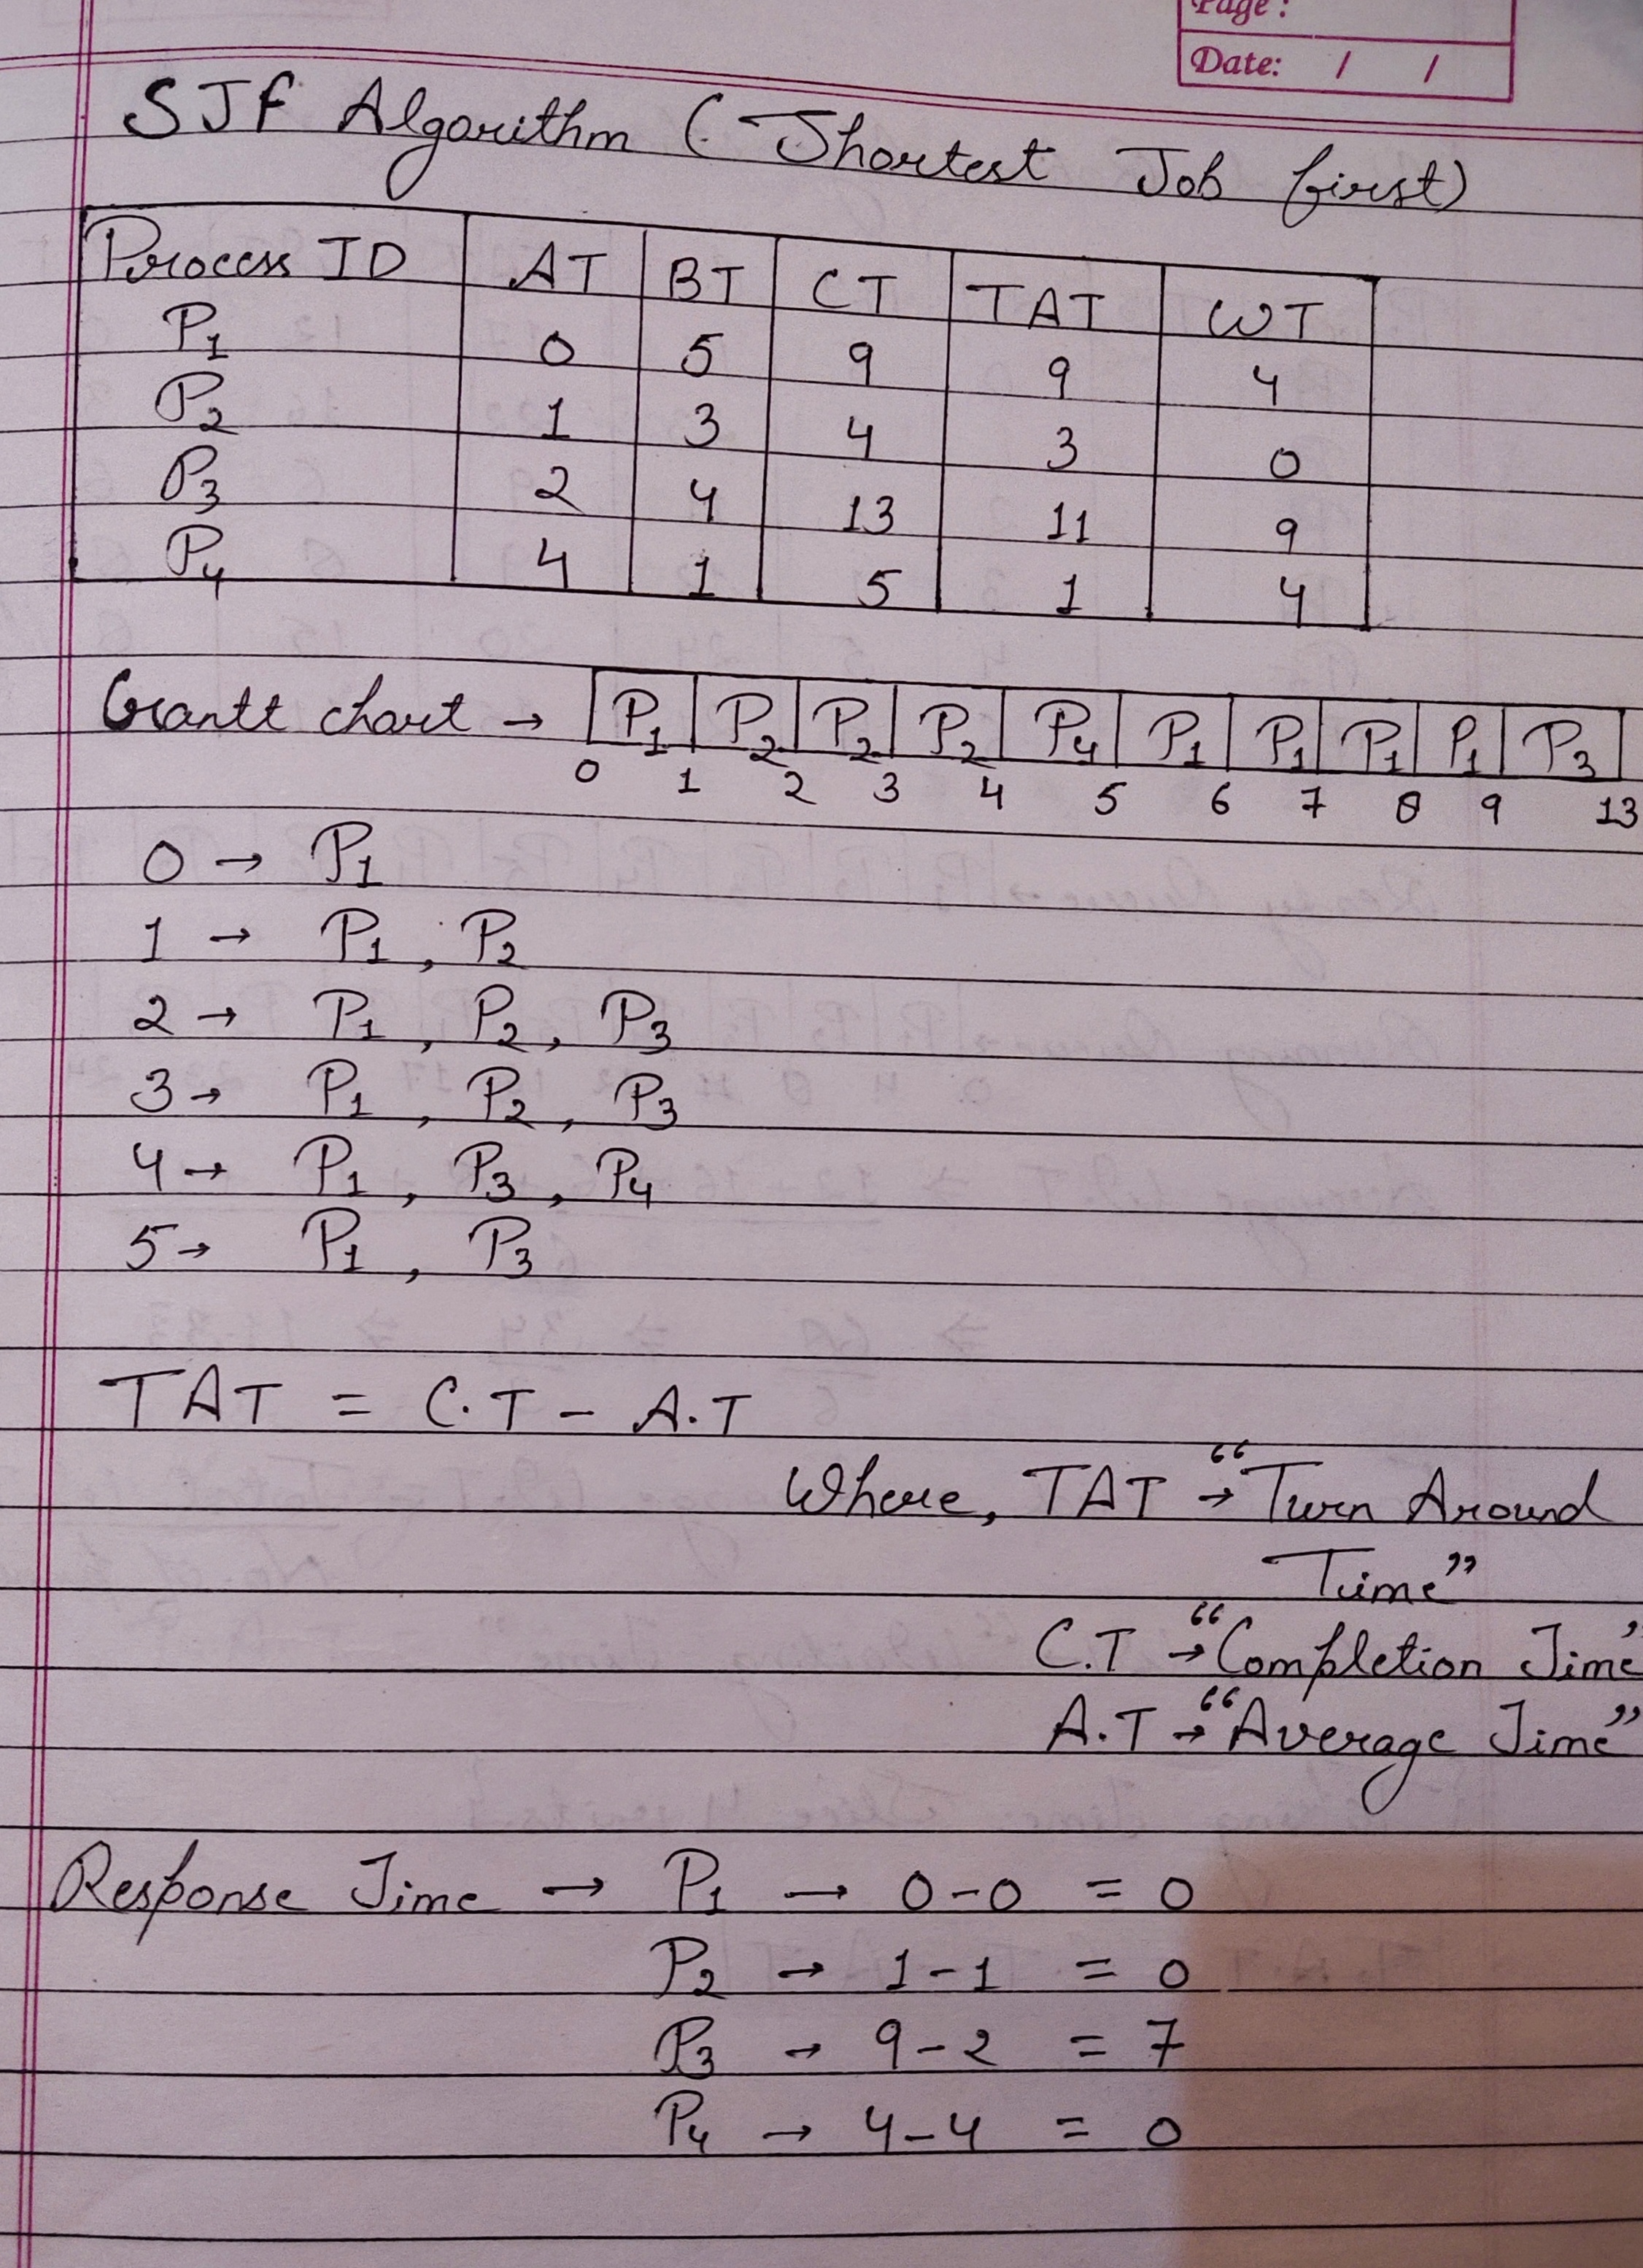 Page:
Date: / /
SJF Algorithm (Shortest Job first)
Process ID AT BT CT TAT WT
P1 0 5 9 9 4
P2 1 3 4 3 0
P3 2 4 13 11 9
P4 4 1 5 1 4
Grantt chart → P1 P2 P2 P2 P4 P1 P1 P1 P1 P3
0 1 2 3 4 5 6 7 8 9 13
0 → P1
1 → P1, P2
2 → P1, P2, P3
3 → P1, P2, P3
4 → P1, P3, P4
5 → P1, P3
TAT = C.T - A.T
Where, TAT → "Turn Around
Time"
C.T → "Completion Time"
A.T → "Average Time"
Response Time → P1 → 0-0 = 0
P2 → 1-1 = 0
P3 → 9-2 = 7
P4 → 4-4 = 0